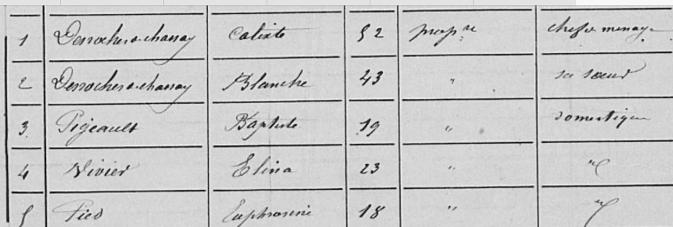 1 Desroches-chassay Calixte 52 propre chef de ménage
2 Desroches-chassay Blanche 43 " sa sœur
3 Pigeault Baptiste 19 " domestique
4 Vivier Elina 23 " "
5 Pied Euphrosine 18 " "